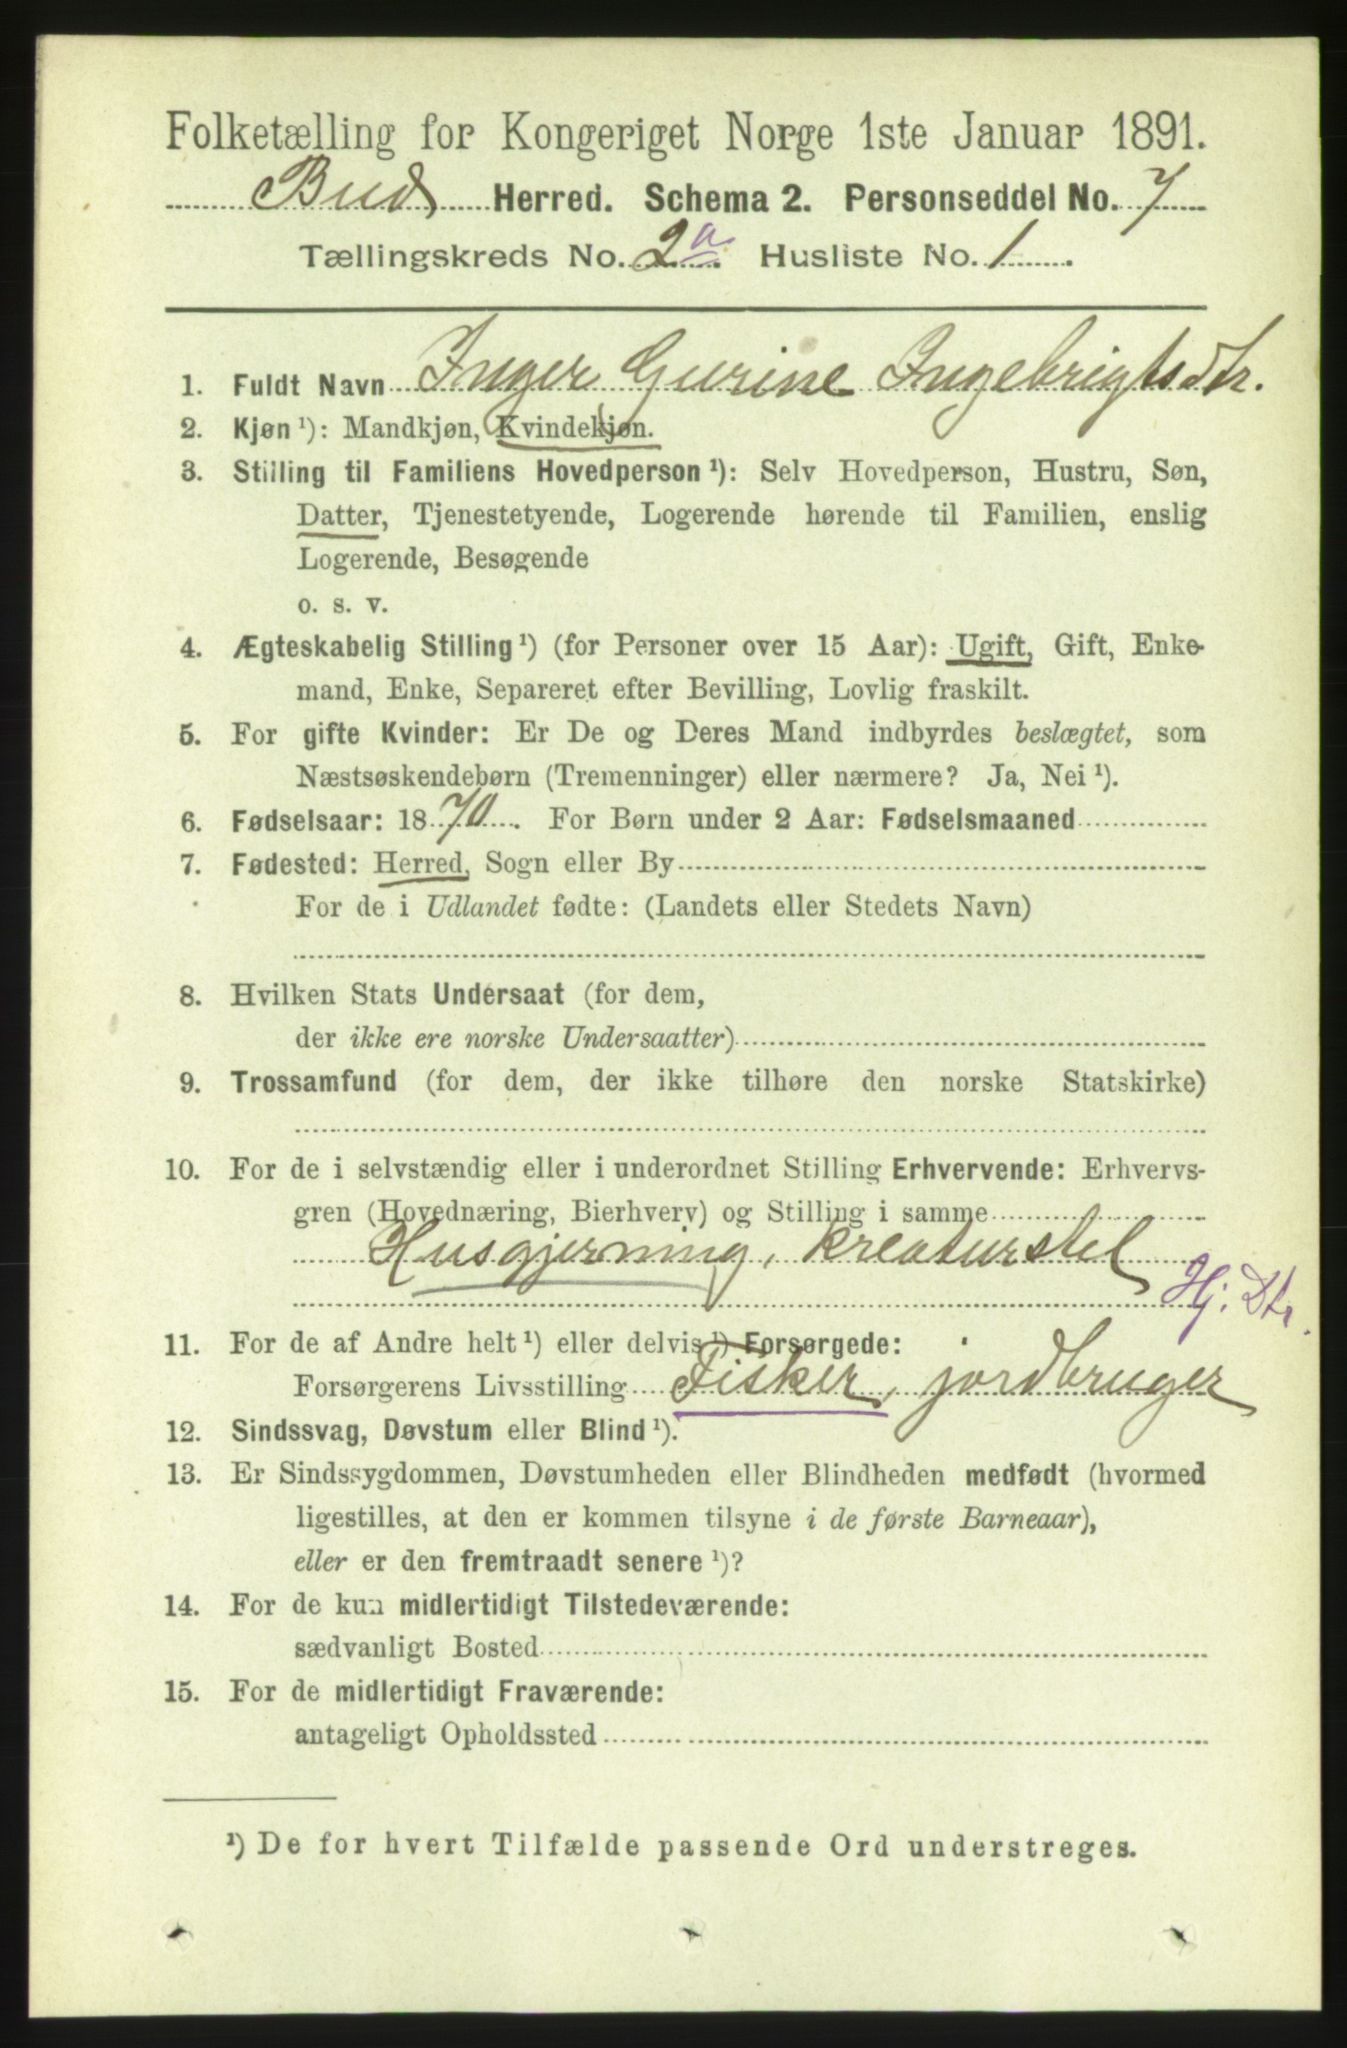 Folketælling for Kongeriget Norge 1ste Januar 1891.
Bud Herred. Schema 2. Personseddel No. 7
Tællingskreds No. 2a. Husliste No. 1.
1. Fuldt Navn Inger Gurine Ingebrigtsdtr.
2. Kjøn ¹): Mandkjøn, Kvindekjøn.
3. Stilling til Familiens Hovedperson ¹): Selv Hovedperson, Hustru, Søn,
Datter, Tjenestetyende, Logerende hørende til Familien, enslig
Logerende, Besøgende
o. s. v.
4. Ægteskabelig Stilling ¹) (for Personer over 15 Aar): Ugift, Gift, Enke-
mand, Enke, Separeret efter Bevilling, Lovlig fraskilt.
5. For gifte Kvinder: Er De og Deres Mand indbyrdes beslægtet, som
Næstsøskendebørn (Tremenninger) eller nærmere? Ja, Nei ¹).
6. Fødselsaar: 1870. For Børn under 2 Aar: Fødselsmaaned
7. Fødested: Herred, Sogn eller By
For de i Udlandet fødte: (Landets eller Stedets Navn)
8. Hvilken Stats Undersaat (for dem,
der ikke ere norske Undersaatter)
9. Trossamfund (for dem, der ikke tilhøre den norske Statskirke)
10. For de i selvstændig eller i underordnet Stilling Erhvervende: Erhvervs-
gren (Hovednæring, Bierhverv) og Stilling i samme
Husgjerning, kreaturstel
Hj. Dtr.
11. For de af Andre helt ¹) eller delvis ¹) Forsørgede:
Forsørgerens Livsstilling Fisker, jordbruger
12. Sindssvag, Døvstum eller Blind ¹).
13. Er Sindssygdommen, Døvstumheden eller Blindheden medfødt (hvormed
ligestilles, at den er kommen tilsyne i de første Barneaar),
eller er den fremtraadt senere ¹)?
14. For de kun midlertidigt Tilstedeværende:
sædvanligt Bosted
15. For de midlertidigt Fraværende:
antageligt Opholdssted
¹) De for hvert Tilfælde passende Ord understreges.